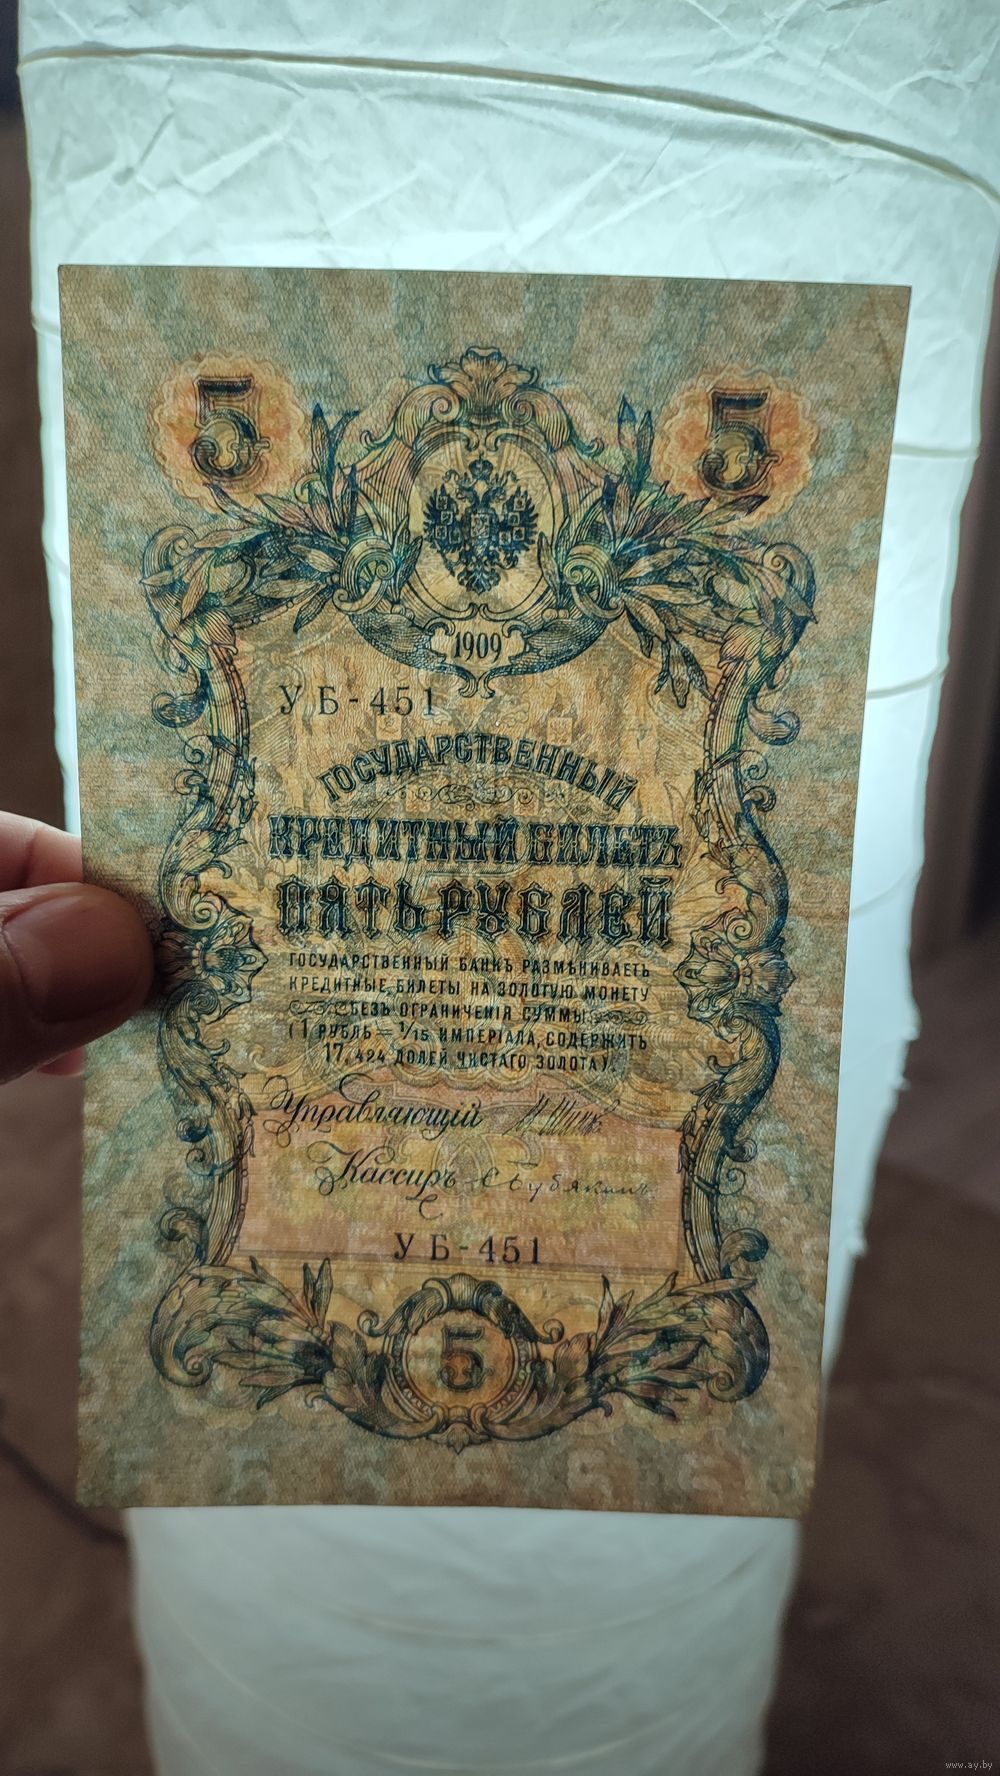 5 5
1909
УБ-451
ГОСУДАРСТВЕННЫЙ
КРЕДИТНЫЙ БИЛЕТЪ
ПЯТЬ РУБЛЕЙ
ГОСУДАРСТВЕННЫЙ БАНКЪ РАЗМѢНИВАЕТЪ
КРЕДИТНЫЕ БИЛЕТЫ НА ЗОЛОТУЮ МОНЕТУ
БЕЗЪ ОГРАНИЧЕНІЯ СУММЫ
(1 РУБЛЬ = 1/15 ИМПЕРІАЛА, СОДЕРЖИТЪ
17,424 ДОЛЕЙ ЧИСТАГО ЗОЛОТА).
Управляющій И Шипов
Кассиръ С Бубякинъ
УБ-451
5
5 5 5 5 5 5
www.ay.by